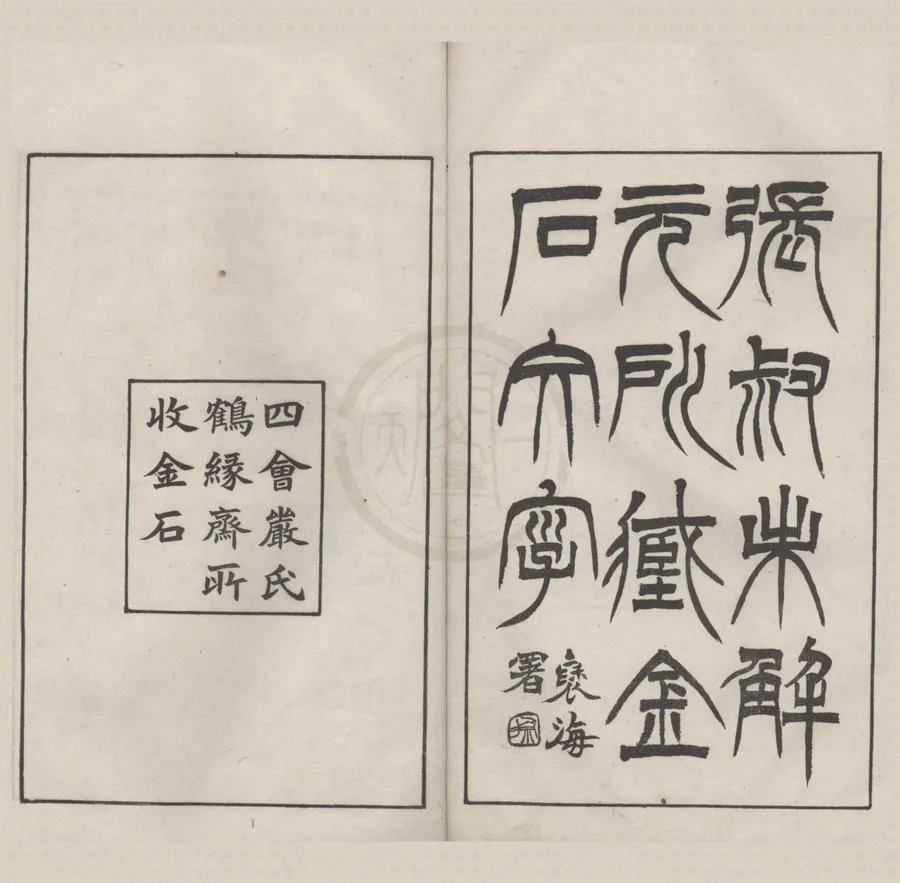 張叔未解
元所藏金
石文字
海
署
四會嚴氏
鶴緣齋所
收金石